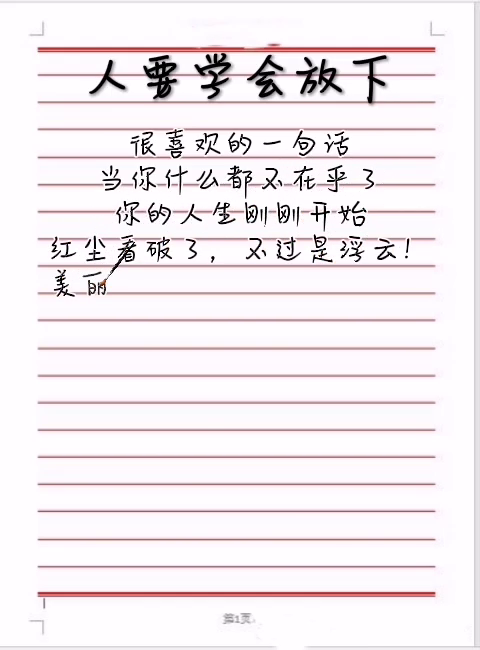 人要学会放下
很喜欢的一句话
当你什么都不在乎了
你的人生刚刚开始
红尘看破了，不过是浮云！
美丽
第1页